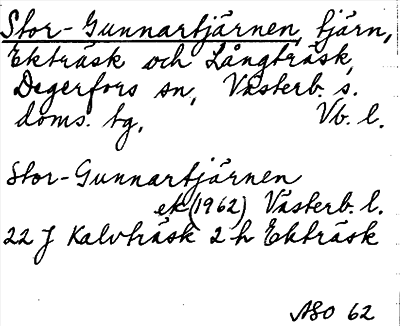 Stor-Gunnartjärnen, tjärn,
Ekträsk och Långträsk,
Degerfors sn, Västerb. s.
doms. tg, Vb. l.
Stor-Gunnartjärnen
ek (1962) Västerb. l.
22 J Kalvträsk 2 h Ekträsk
ASO 62